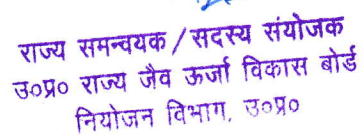 राज्य समन्वयक / सदस्य संयोजक
उ०प्र० राज्य जैव ऊर्जा विकास बोर्ड
नियोजन विभाग, उ०प्र०